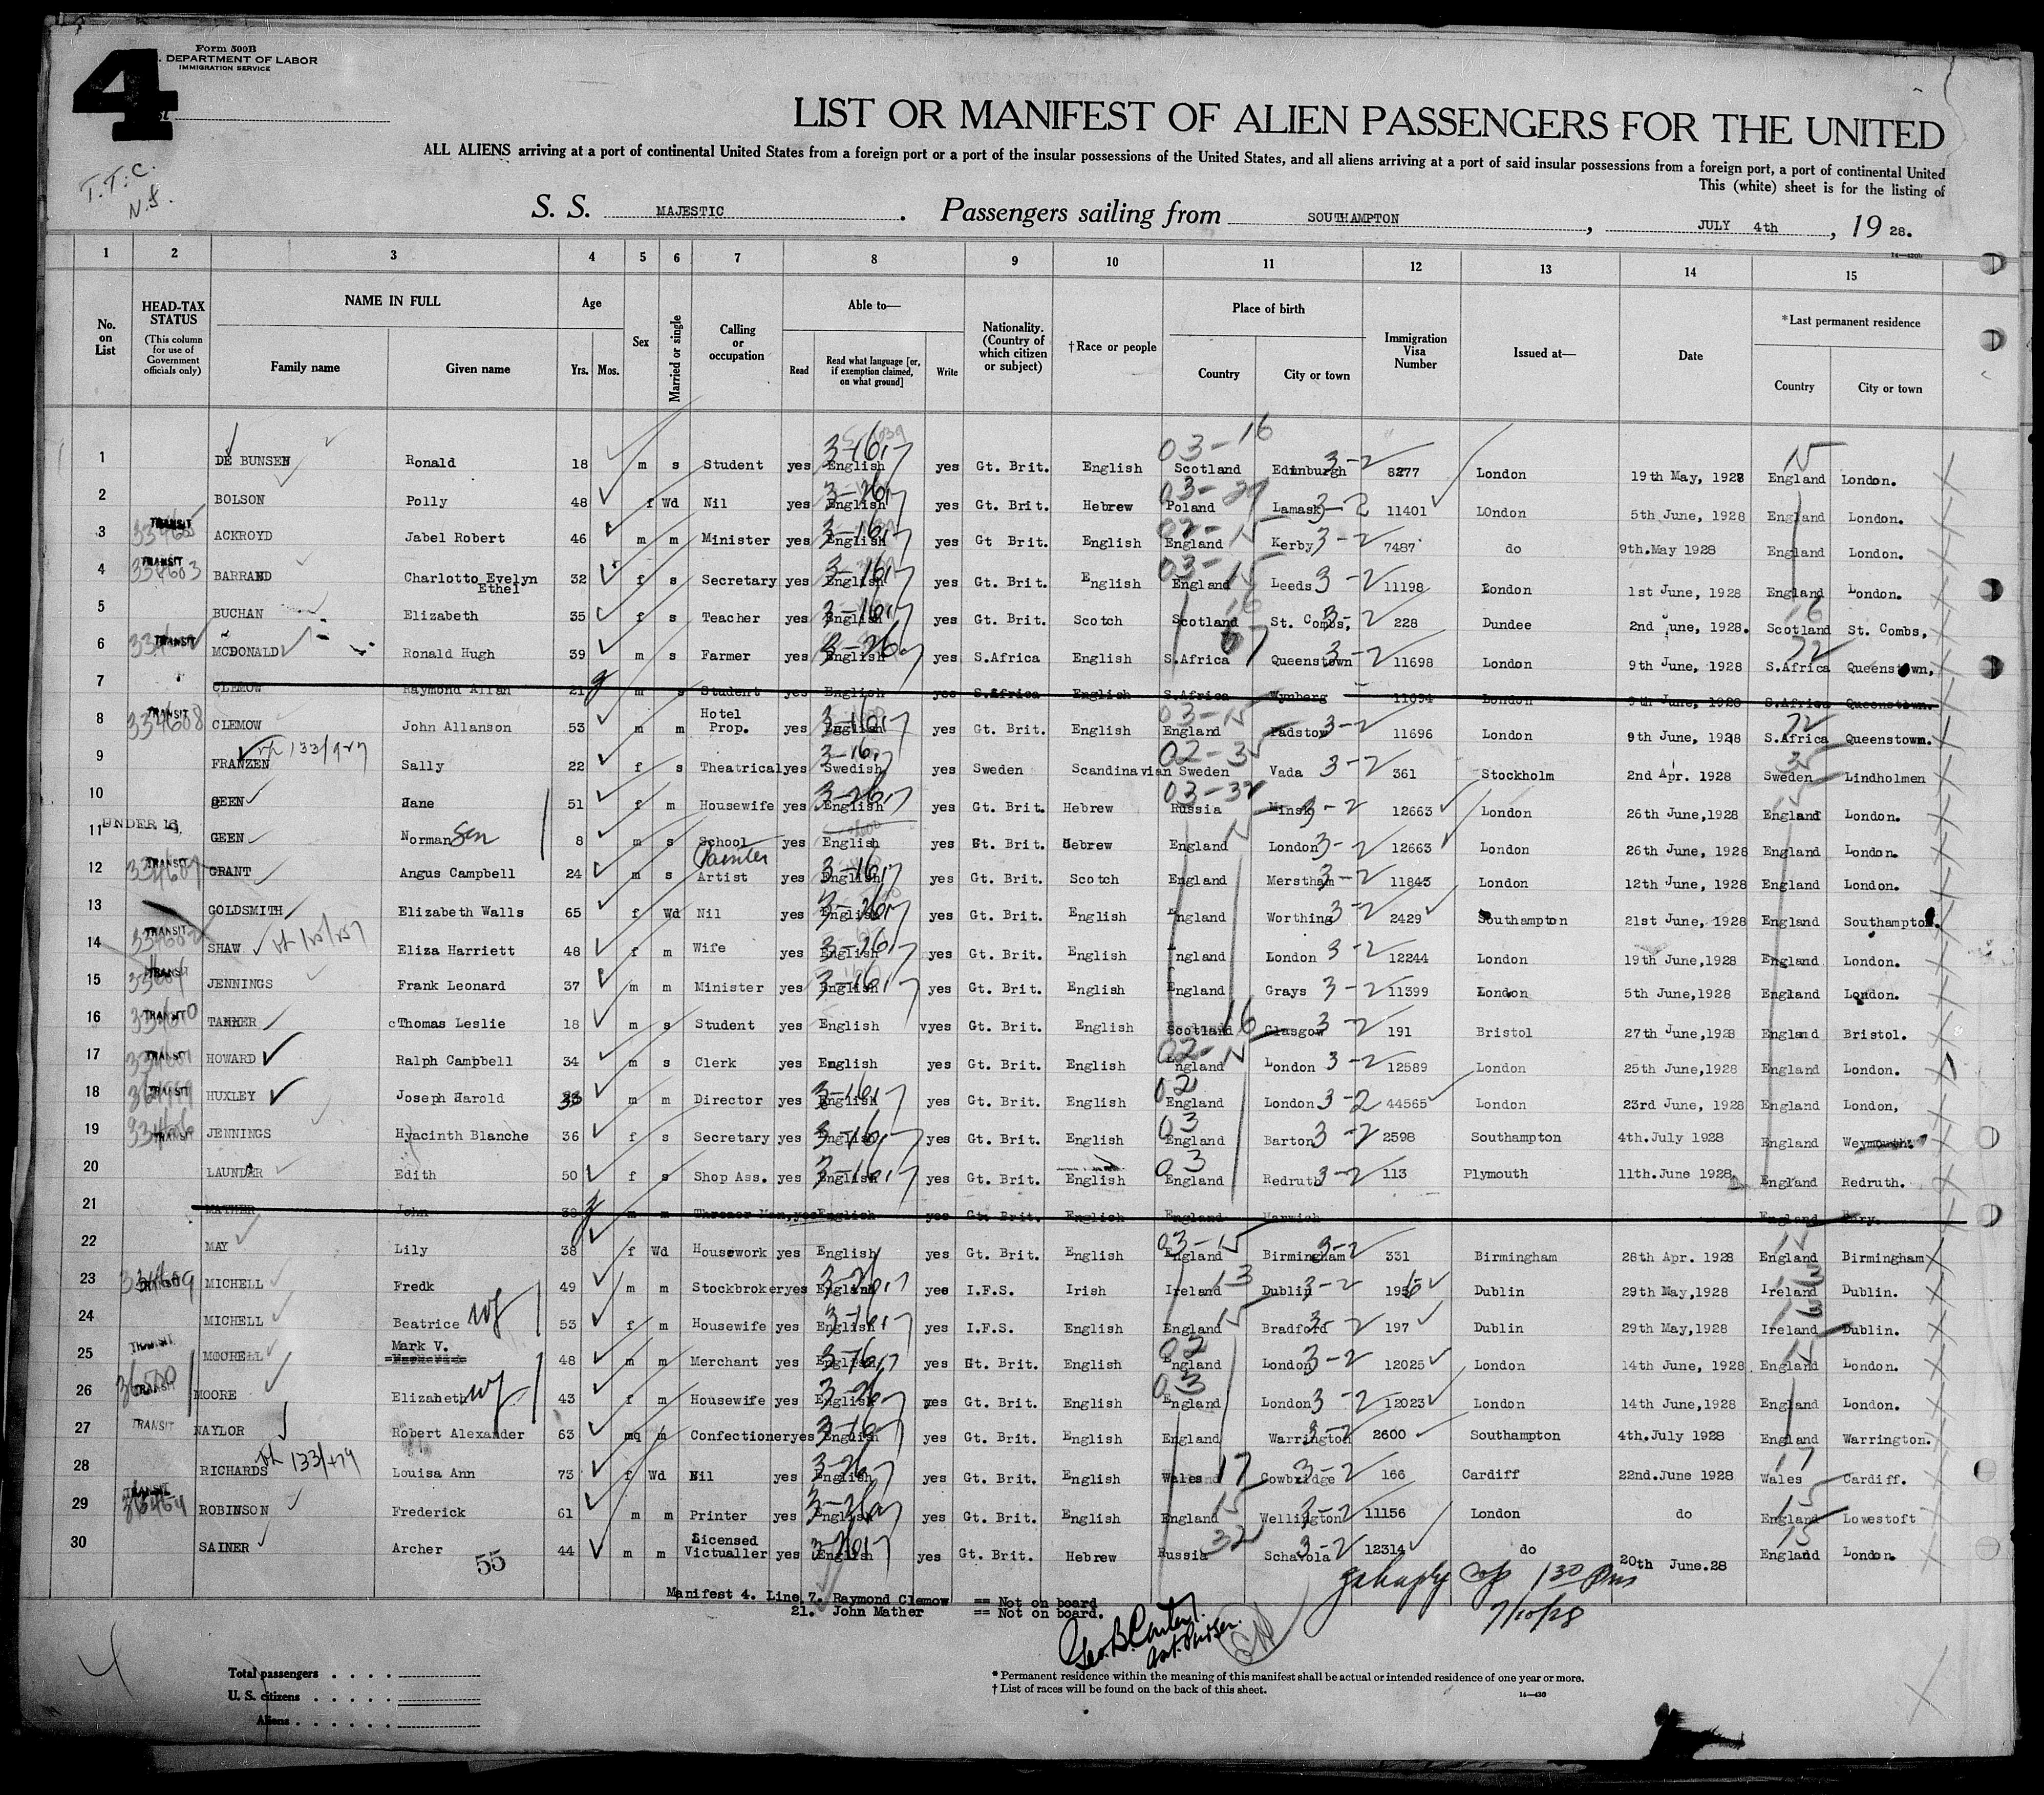 Form 500B
DEPARTMENT OF LABOR
IMMIGRATION SERVICE
4
T.T.C.
N.S.
LIST OR MANIFEST OF ALIEN PASSENGERS FOR THE UNITED
ALL ALIENS arriving at a port of continental United States from a foreign port or a port of the insular possessions of the United States, and all aliens arriving at a port of said insular possessions from a foreign port, a port of continental United
This (white) sheet is for the listing of
S. S. MAJESTIC. Passengers sailing from SOUTHAMPTON, JULY 4th, 19 28.
1 2 3 4 5 6 7 8 9 10 11 12 13 14 15
No. on List
HEAD-TAX STATUS (This column for use of Government officials only)
NAME IN FULL Family name Given name
Age Yrs. Mos.
Sex
Married or single
Calling or occupation
Able to— Read Read what language [or, if exemption claimed, on what ground] Write
Nationality. (Country of which citizen or subject)
†Race or people
Place of birth Country City or town
Immigration Visa Number
Issued at—
Date
*Last permanent residence Country City or town
1 DE BUNSEN Ronald 18 m s Student yes English yes Gt. Brit. English Scotland Edinburgh 8277 London 19th May, 1928 England London.
2 BOLSON Polly 48 f Wd Nil yes English yes Gt. Brit. Hebrew Poland Lamask 11401 LOndon 5th June, 1928 England London.
3 TRANSIT ACKROYD Jabel Robert 46 m m Minister yes English yes Gt Brit. English England Kerby 7487 do 9th.May 1928 England London.
4 TRANSIT BARRAND Charlotto Evelyn Ethel 32 f s Secretary yes English yes Gt. Brit. English England Leeds 11198 London 1st June, 1928 England London.
5 BUCHAN Elizabeth 35 f s Teacher yes English yes Gt. Brit. Scotch Scotland St. Combs, 228 Dundee 2nd June, 1928. Scotland St. Combs,
6 TRANSIT MCDONALD Ronald Hugh 39 m s Farmer yes English yes S.Africa English S.Africa Queenstown 11698 London 9th June, 1928 S.Africa Queenstown,
7 CLEMOW Raymond Allan 21 m s Student yes English yes S.Africa English S.Africa Wynberg 11694 London 9th June, 1928 S.Africa Queenstown.
8 TRANSIT 334608 CLEMOW John Allanson 53 m m Hotel Prop. yes English yes Gt. Brit. English England Padstow 11696 London 9th June, 1928 S.Africa Queenstown.
9 FRANZEN Sally 22 f s Theatrical yes Swedish yes Sweden Scandinavian Sweden Vada 361 Stockholm 2nd Apr. 1928 Sweden Lindholmen
10 GEEN Jane 51 f m Housewife yes English yes Gt. Brit. Hebrew Russia Minsk 12663 London 26th June,1928 England London.
11 UNDER 16 GEEN Norman Son 8 m s School yes English yes Gt. Brit. Hebrew England London 12663 London 26th June, 1928 England London.
12 TRANSIT GRANT Angus Campbell 24 m s Painter Artist yes English yes Gt. Brit. Scotch England Merstham 11843 London 12th June, 1928 England London.
13 GOLDSMITH Elizabeth Walls 65 f Wd Nil yes English yes Gt. Brit. English England Worthing 2429 Southampton 21st June, 1928 England Southampton.
14 TRANSIT SHAW Eliza Harriett 48 f m Wife yes English yes Gt. Brit. English England London 12244 London 19th June,1928 England London.
15 TRANSIT JENNINGS Frank Leonard 37 m m Minister yes English yes Gt. Brit. English England Grays 11399 London 5th June,1928 England London.
16 TRANSIT TANNER Thomas Leslie 18 m s Student yes English yes Gt. Brit. English Scotland Glasgow 191 Bristol 27th June,1928 England Bristol.
17 TRANSIT HOWARD Ralph Campbell 34 m s Clerk yes English yes Gt. Brit. English England London 12589 London 25th June,1928 England London.
18 TRANSIT HUXLEY Joseph Harold 33 m m Director yes English yes Gt. Brit. English England London 44565 London 23rd June, 1928 England London,
19 TRANSIT JENNINGS Hyacinth Blanche 36 f s Secretary yes English yes Gt. Brit. English England Barton 2598 Southampton 4th.July 1928 England Weymouth.
20 LAUNDER Edith 50 f s Shop Ass. yes English yes Gt. Brit. English England Redruth 113 Plymouth 11th.June 1928 England Redruth.
21 MATHER John 38 m m yes English yes Gt. Brit. English England Harwich England Bury.
22 MAY Lily 38 f Wd Housework yes English yes Gt. Brit. English England Birmingham 331 Birmingham 28th Apr. 1928 England Birmingham
23 TRANSIT MICHELL Fredk 49 m m Stockbroker yes England yes I.F.S. Irish Ireland Dublin 1956 Dublin 29th May,1928 Ireland Dublin.
24 MICHELL Beatrice wf 53 f m Housewife yes English yes I.F.S. English England Bradford 197 Dublin 29th May,1928 Ireland Dublin.
25 TRANSIT MOORE Mark V. 48 m m Merchant yes English yes Gt. Brit. English England London 12025 London 14th June, 1928 England London.
26 TRANSIT MOORE Elizabeth wf 43 f m Housewife yes English yes Gt. Brit. English England London 12023 London 14th June,1928 England London.
27 TRANSIT NAYLOR Robert Alexander 63 m m Confectioner yes English yes Gt. Brit. English England Warrington 2600 Southampton 4th.July 1928 England Warrington.
28 RICHARDS Louisa Ann 73 f Wd Nil yes English yes Gt. Brit. English Wales Cowbridge 166 Cardiff 22nd.June 1928 Wales Cardiff.
29 TRANSIT ROBINSON Frederick 61 m m Printer yes English yes Gt. Brit. English England Wellington 11156 London do England Lowestoft
30 SAINER Archer 44 m m Licensed Victualler yes English yes Gt. Brit. Hebrew Russia Schavola 12314 do 20th June.28 England London.
55
Manifest 4. Line 7. Raymond Clemow == Not on board
21. John Mather == Not on board.
Geo. B. Asst. Purser.
1 30 Pm
7/10/28
Total passengers . . . .
U. S. citizens . . . . .
Aliens . . . . . .
* Permanent residence within the meaning of this manifest shall be actual or intended residence of one year or more.
† List of races will be found on the back of this sheet.
14—430